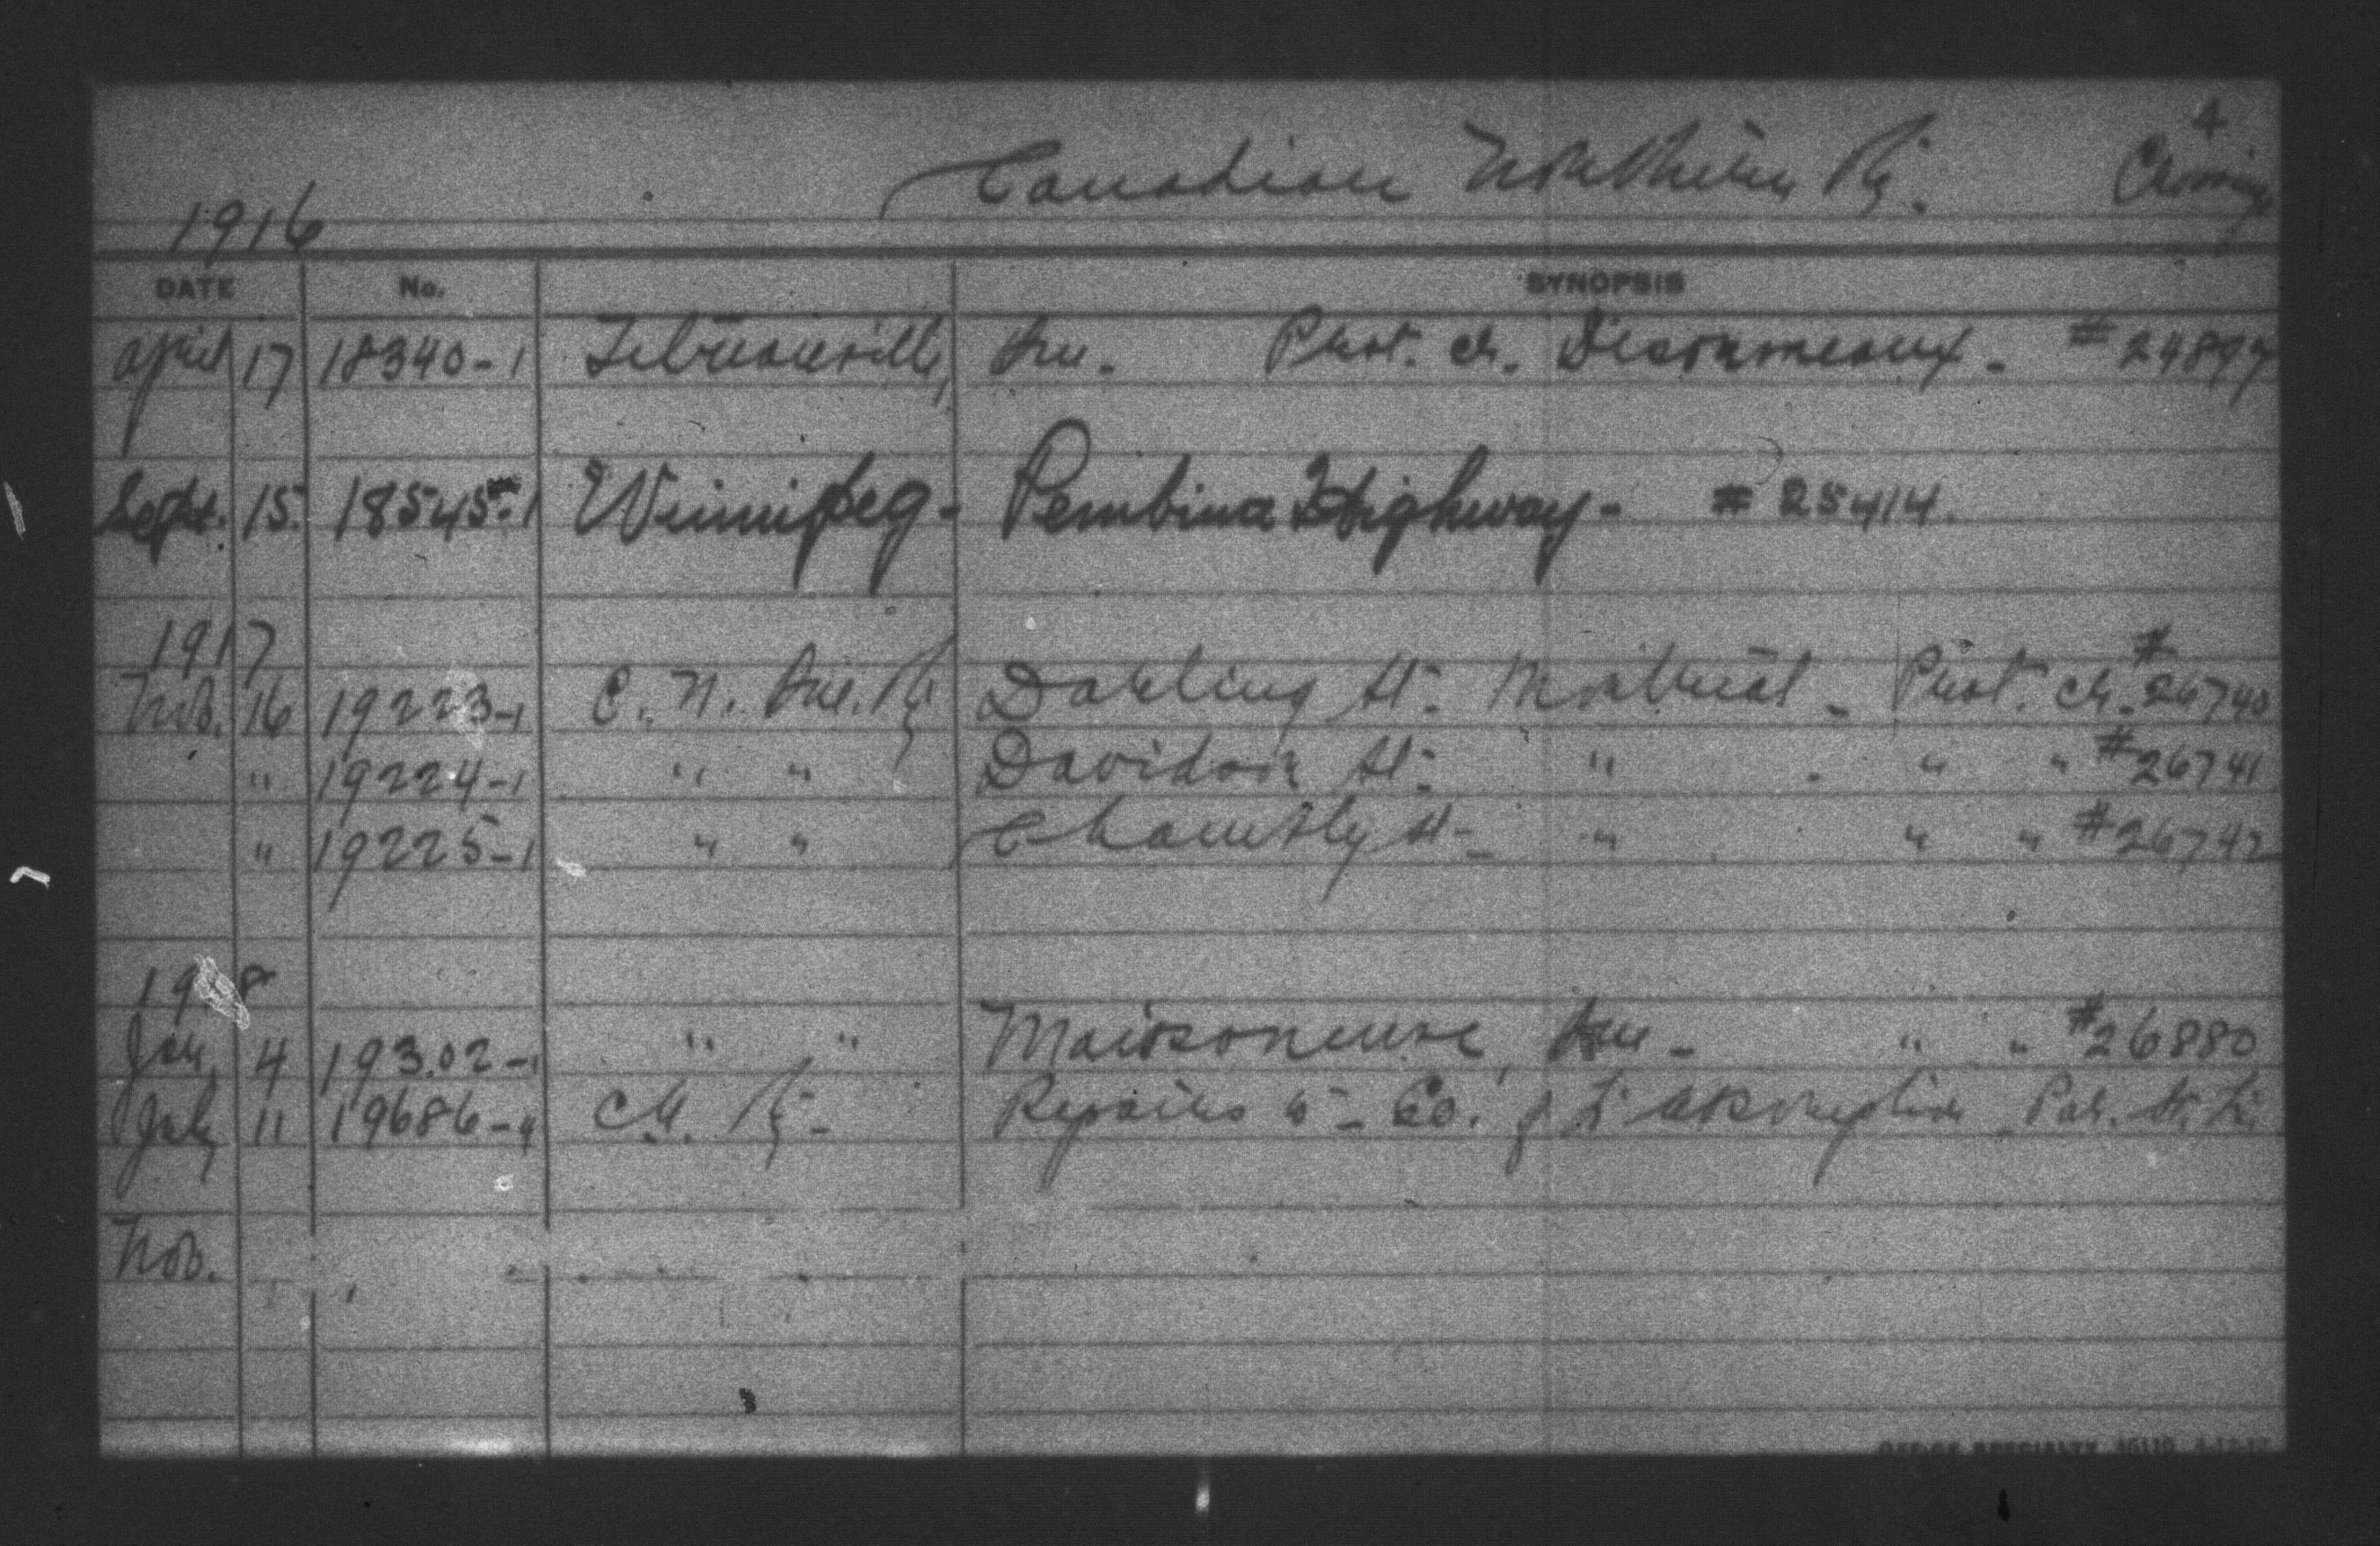 4
Canadian Northern Ry. Crossings
1916
DATE No. SYNOPSIS
April 17 18340-1 Que. Prot. Ch. Desormeaux. #24897
Sept. 15. 18545-1 Winnipeg- Pembina Highway- #25414.
1917
Nov. 16 19223-1 C. N. Que. Ry Darling St- Montreal - Prot. Ch. #26740
" 19224-1 " " Davidson St- " " " #26741
" 19225-1 " " Chambly St- " " " #26742
1918
Jan. 4 19302-1 " " Maissoneuve, Que - " " #26880
July 11 19686-4 C.N. Ry- Repairs to - Co. of L'Assomption Par.
Nov.
OFFICE SPECIALTY